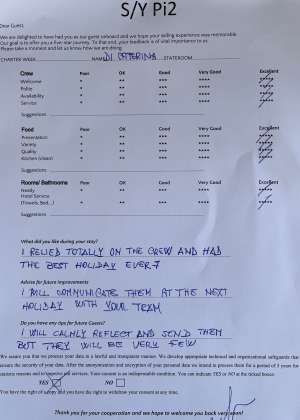 S/Y Pi2
Dear Guest,
We are delighted to have had you as our guest onboard and we hope your sailing experience was memorable.
Our goal is to offer you a five-star journey. To that end, your feedback is of vital importance to us.
Please take a moment and let us know how we are doing.
CHARTER WEEK NAME DI CATERINA STATEROOM
Crew Poor OK Good Very Good Excellent
Welcome * ** *** **** *****
Polite * ** *** **** *****
Availability * ** *** **** *****
Service * ** *** **** *****
Suggestions
Food Poor OK Good Very Good Excellent
Presentation * ** *** **** *****
Variety * ** *** **** *****
Quality * ** *** **** *****
Kitchen (clean) * ** *** **** *****
Suggestions
Rooms/ Bathrooms Poor OK Good Very Good Excellent
Ready * ** *** **** *****
Hotel Service
(Towels, Bed...) * ** *** **** *****
Suggestions
What did you like during your stay?
I RELIED TOTALLY ON THE CREW AND HAD
THE BEST HOLIDAY EVER
Advise for future improvements
I WILL COMMUNICATE THEM AT THE NEXT
HOLIDAY WITH YOUR TEAM
Do you have any tips for future Guests?
I WILL CALMLY REFLECT AND SEND THEM
BUT THEY WILL BE VERY FEW
We assure you that we process your data in a lawful and transparent manner. We develop appropriate technical and organizational safeguards that
ensure the security of your data. After the anonymization and encryption of your personal data we intend to process them for a period of 5 years for
reasons and to improve our services. Your consent is an indispensable condition. You can indicate YES or NO at the ticked boxes:
YES NO
You have the right of and you have the right to withdraw your consent at any time.
Thank you for your cooperation and we hope to welcome you back very soon!